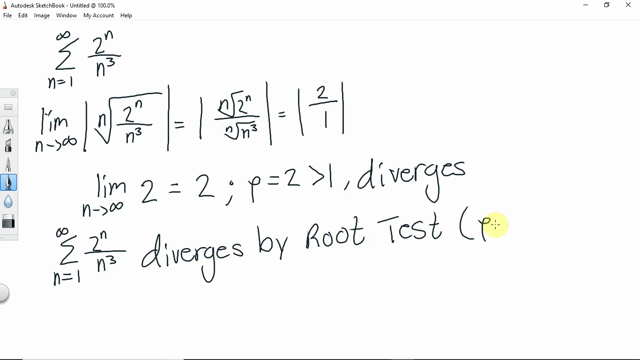 Autodesk SketchBook - Untitled @ 100.0%
File Edit Image Window My Account Help
∞ ∑ n=1 2^n / n^3
lim n→∞ | ⁿ√(2^n / n^3) | = | ⁿ√2^n / ⁿ√n^3 | = | 2 / 1 |
lim n→∞ 2 = 2 ; ρ = 2 > 1, diverges
∞ ∑ n=1 2^n / n^3 diverges by Root Test (ρ